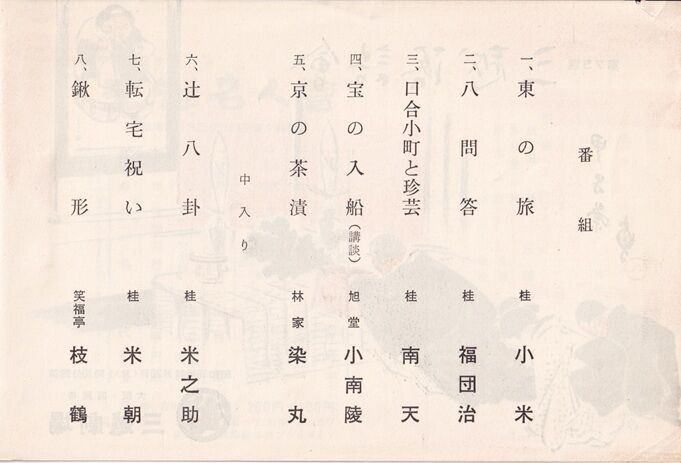 番組
一、東の旅 桂 小米
二、八問答 桂 福団治
三、口合小町と珍芸 桂 南天
四、宝の入船(講談) 旭堂 小南陵
五、京の茶漬 林家 染丸
中入り
六、辻八卦 桂 米之助
七、転宅祝い 桂 米朝
八、鍬形 笑福亭 枝鶴